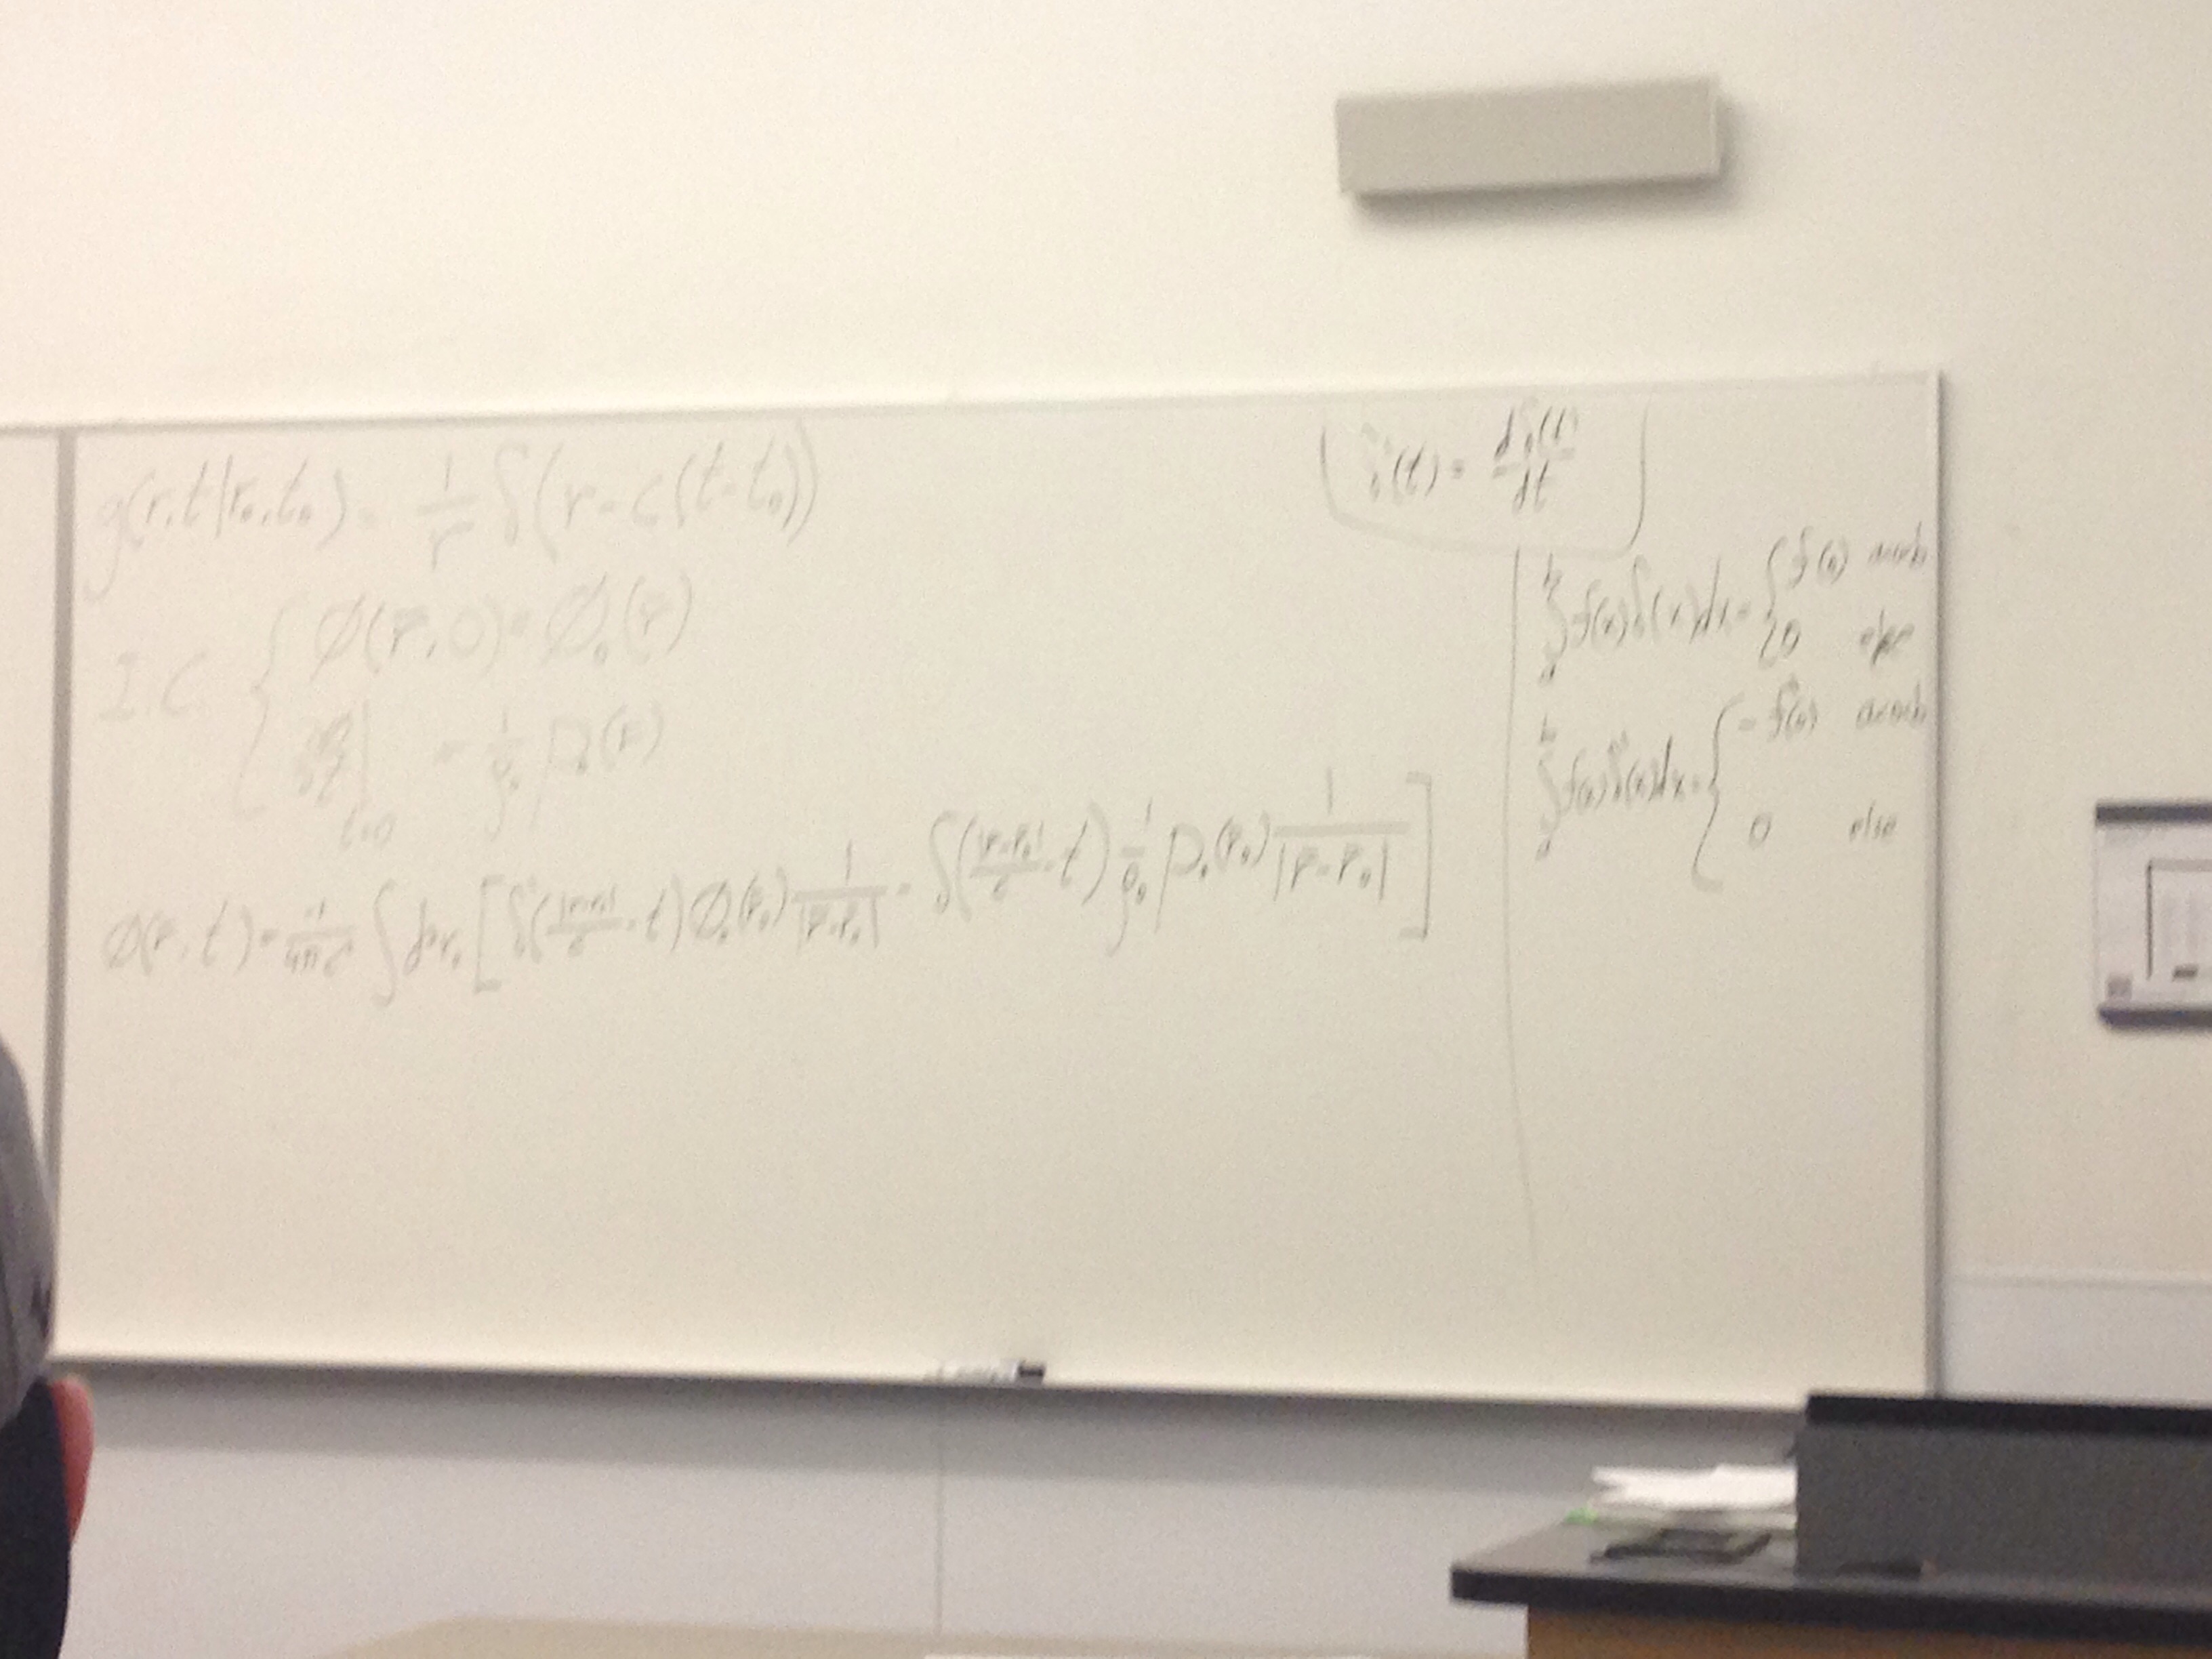 g(r,t|r₀,t₀) = 1/r δ(r-c(t-t₀))
I.C. { ϕ(r̄,0) = ϕ₀(r̄)
∂ϕ/∂t |t=0 = 1/ρ₀ p₀(r̄)
ϕ(r̄,t) = ∫ d³r₀ [ δ'(|r̄-r̄₀|/c - t) ϕ₀(r̄₀) 1/|r̄-r̄₀| - δ(|r̄-r̄₀|/c - t) 1/ρ₀ p₀(r̄₀) 1/|r̄-r̄₀| ]
δ'(t) = dδ(t)/dt
∫ₐᵇ f(x)δ(x)dx = { f(0) a<0<b
0 else
∫ₐᵇ f(x)δ'(x)dx = { -f'(0) a<0<b
0 else